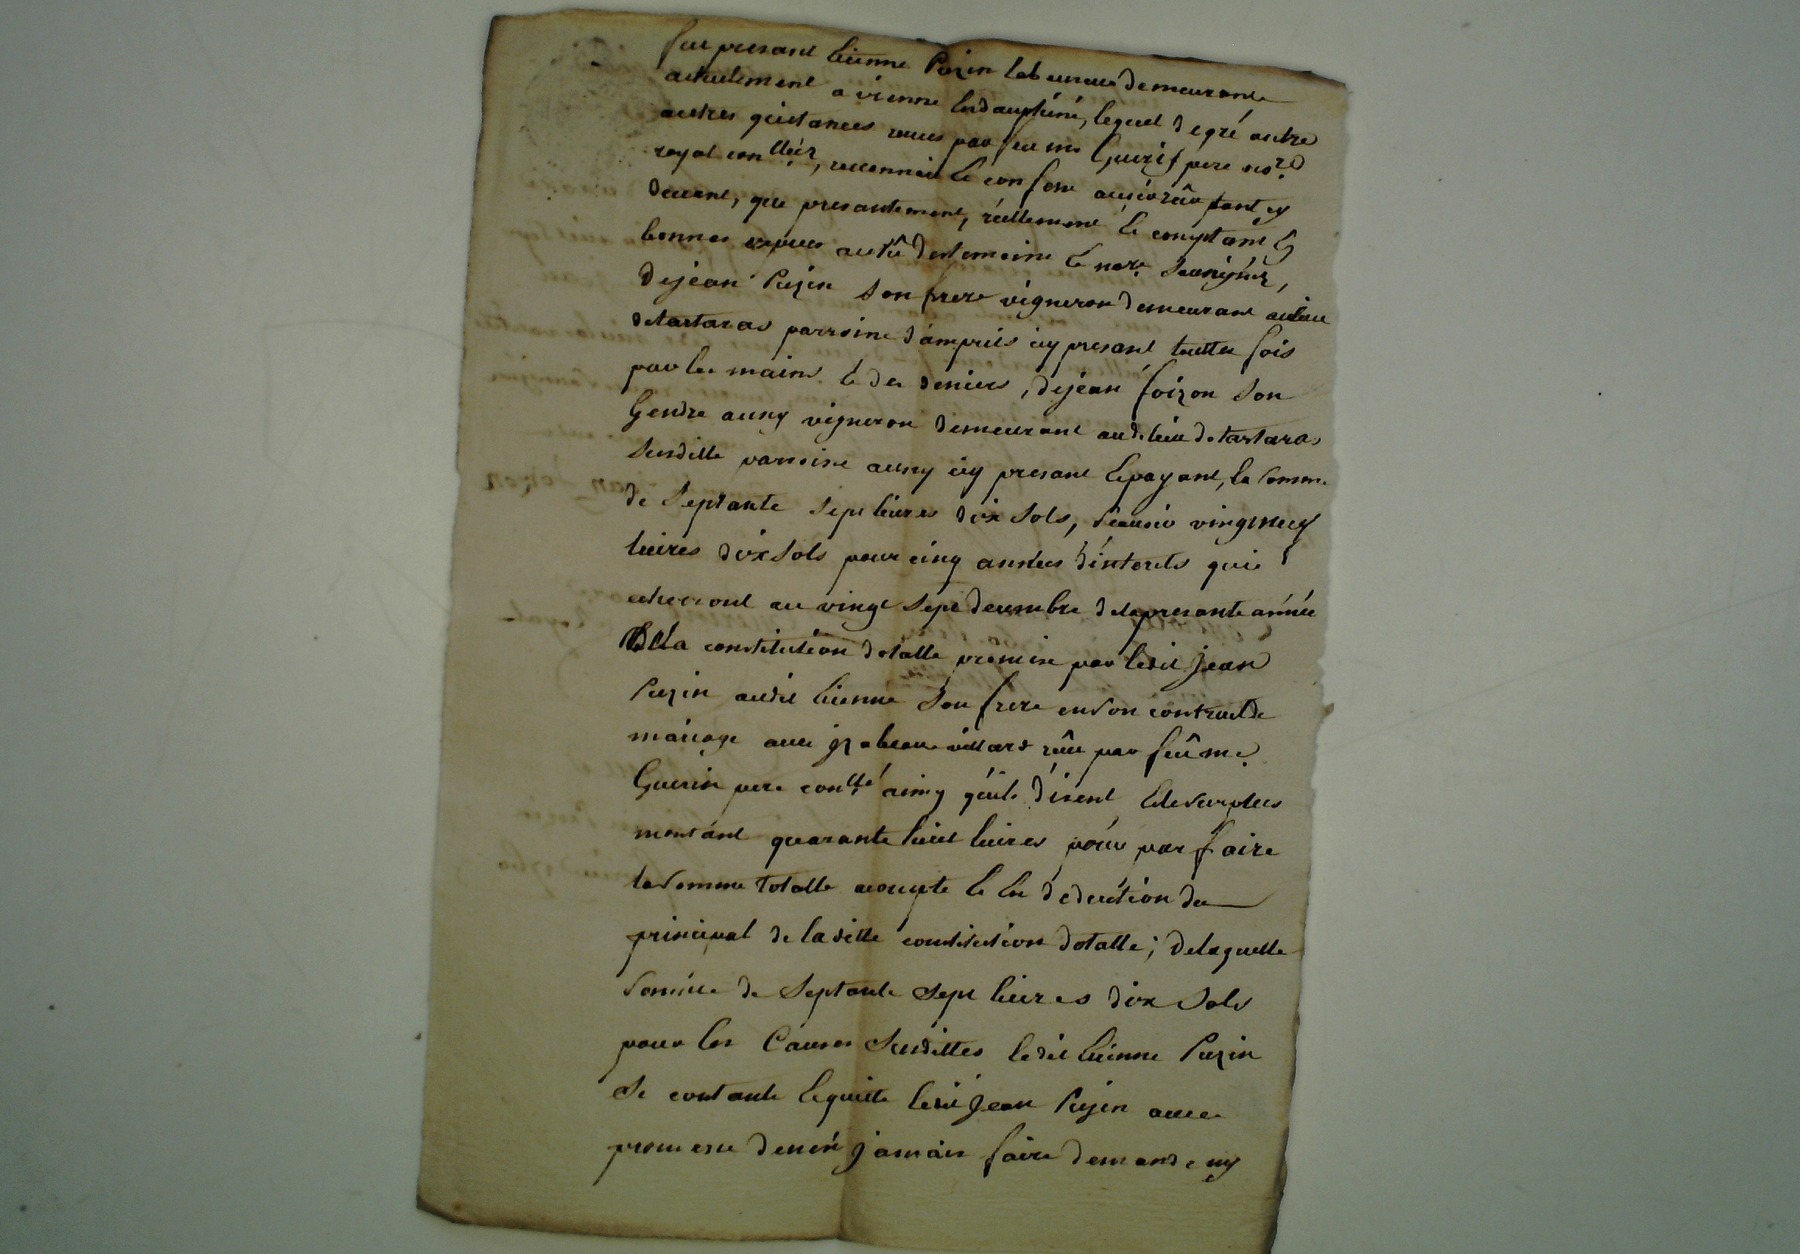 fut presant Etienne Puzin laboureur demeurant
actuelement a vienne En dauphiné, lequel de gré outre
autres quistances reues par feu me Guerin pere no.re
royal reconnoit Et confesse avoir
devant, que presantement, reellement Et comptant En
bonnes especes au vû des temoins Et no.re soussignéz,
de jean Puzin son frere vigneron demeurant au lieu
de tartaras parroisse d'ampuis icy presant toutte fois
par les mains Et des deniers, de jean foizon son
Gendre aussy vigneron demeurant aud. lieu de tartaras
susditte parroisse aussy icy presant Et payant, la somme
de septante sept livres dix sols, sçavoir vingt neuf
livres dix sols pour cinq années d'interets qui
echerront au vingt sept decembre de la presante année
De la constitution dotalle promise par ledit jean
Puzin audit Etienne son frere en son contract de
mariage avec jzabeau villard rêû par feû me
Guerin pere ainsy qu'ils disent Et le surplus
montant quarante huit livres pour par faire
la somme totalle acompte Et En deduction du
principal de laditte constitution dotalle; de laquelle
somme de septante sept livres dix sols
pour les Causes susdittes ledit Etienne Puzin
se contante Et quitte ledit jean Puzin avec
promesse de n'en jamais faire demande ny